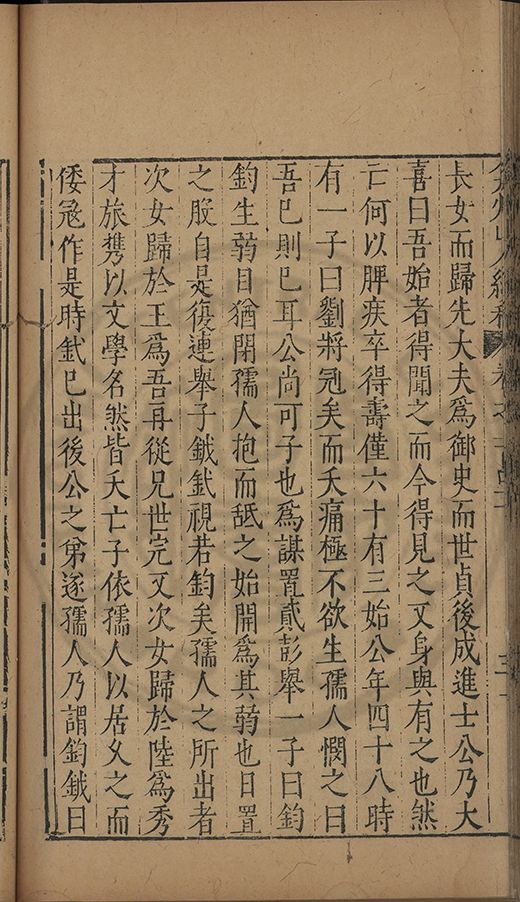 長女而歸先大夫爲御史而世貞後成進士公乃大
喜曰吾始者得聞之而今得見之又身與有之也然
亡何以脾疾卒得壽僅六十有三始公年四十八時
有一子曰劉將冠矣而夭痛極不欲生孺人憫之曰
吾巳則巳耳公尚可子也爲謀置貳彭舉一子曰鈞
鈞生弱目猶閉孺人抱而舐之始開爲其弱也日置
之股自是復連舉子鉞鉽視若鈞矣孺人之所出者
次女歸於王爲吾再從兄世完又次女歸於陸爲秀
才旅攜以文學名然皆夭亡子依孺人以居久之而
倭冦作是時鉽巳出後公之弟逐孺人乃謂鈞鉞曰